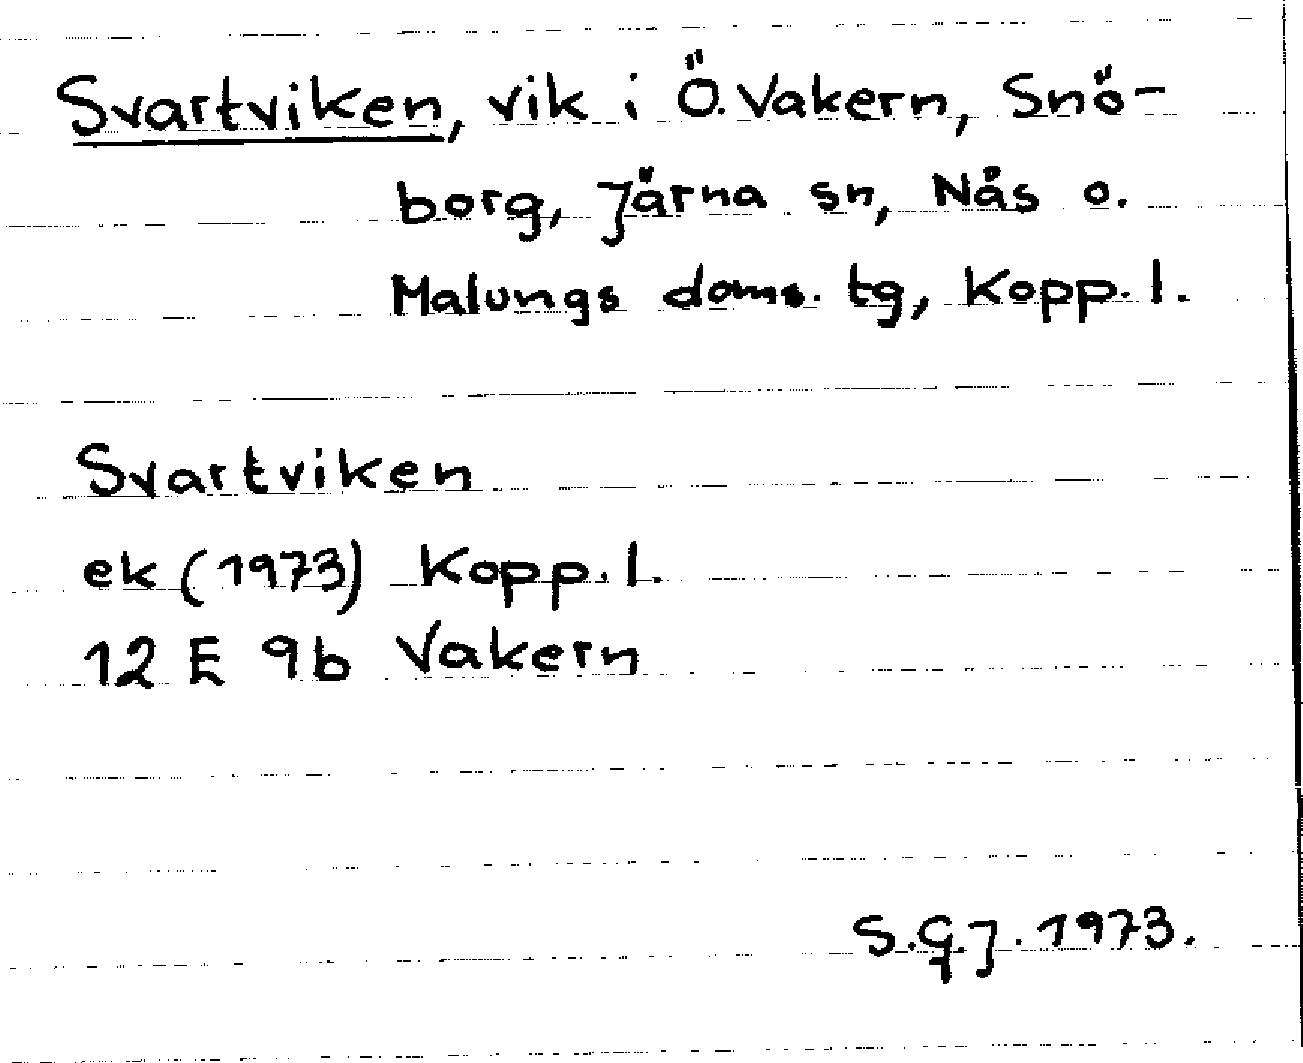 Svartviken, vik i Ö. Vakern, Snö-
borg, Järna sn, Nås o.
Malungs doms. tg, Kopp. l.
Svartviken
ek (1973) Kopp. l.
12 E 9b Vakern
S.G.J. 1973.